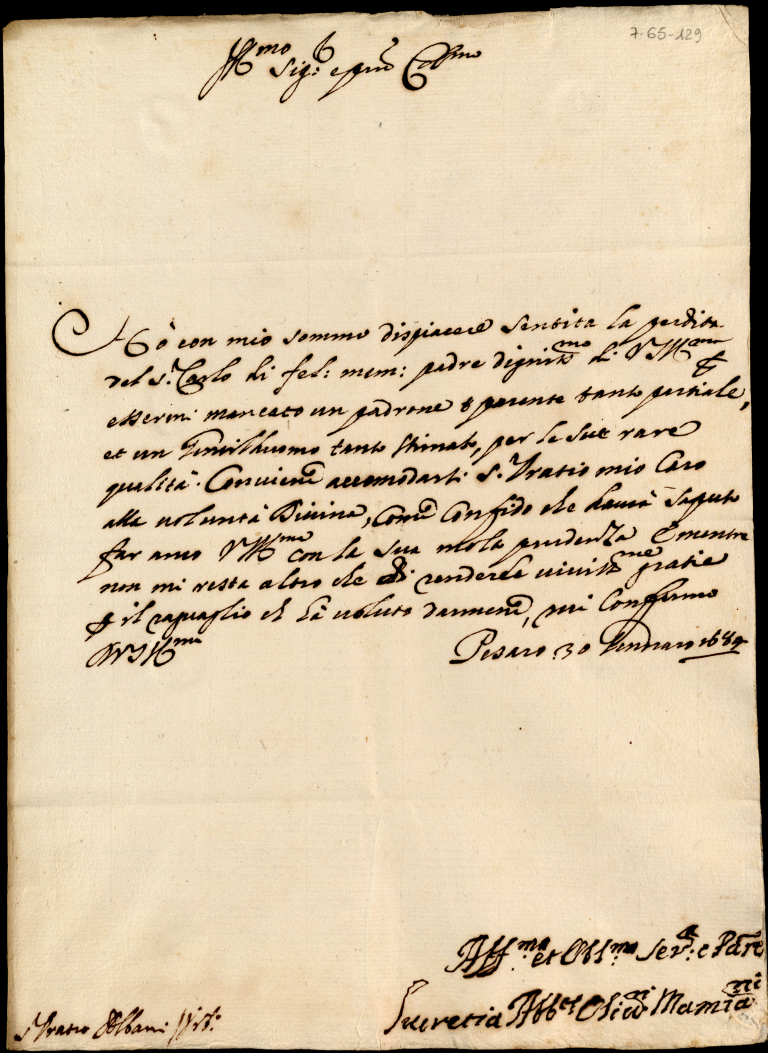 7-65-129
Ill.mo Sig.r e pron Coll.mo
Hò con mio sommo dispiacere sentita la perdita
del S.r Carlo di fel: mem: padre dignis.mo di V.S. Ill.ma p
essermi mancato un padrone e parente tanto partiale,
et un Gentilhuomo tanto stimato, per le sue rare
qualità. Conviene accomodarsi S.r Oratio mio Caro
alla volontà Divina, come confido che haverà saputo
far anco V.S. Ill.ma con la sua molta prudenza e mentre
non mi resta altro che di renderle vivis.me gratie
p il raguaglio ch' hà voluto darmene, mi confermo
D V.S. Ill.ma
Pesaro 30 Gennaro 1684
Aff.ma et Obl.ma Ser.a e Parte
Lucretia Abb.ti Olivi Mamiani
S.r Oratio Albani Urb.o